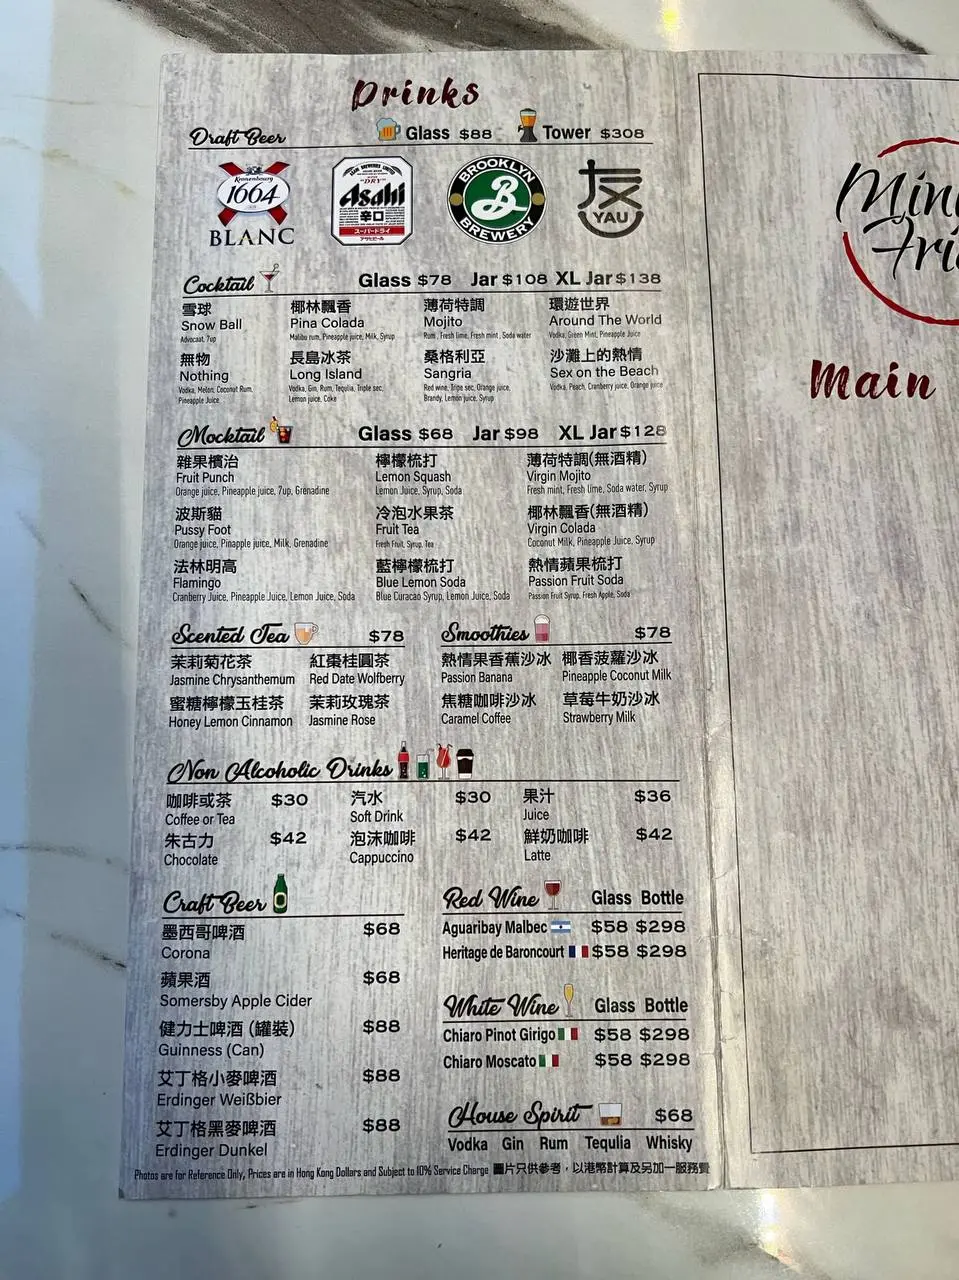 Drinks
Draft Beer Glass $88 Tower $308
Kronenbourg
1664
BLANC
"DRY"
Asahi
辛口
スーパードライ
アサヒビール
BROOKLYN
B
BREWERY
友
YAU
Cocktail Glass $78 Jar $108 XL Jar $138
雪球 椰林飄香 薄荷特調 環遊世界
Snow Ball Pina Colada Mojito Around The World
Advocaat, 7up Malibu rum, Pineapple juice, Milk, Syrup Rum, Fresh lime, Fresh mint, Soda water Vodka, Green Mint, Pineapple Juice
無物 長島冰茶 桑格利亞 沙灘上的熱情
Nothing Long Island Sangria Sex on the Beach
Vodka, Melon, Coconut Rum, Vodka, Gin, Rum, Tequlia, Triple sec, Red wine, Tripe sec, Orange juice, Vodka, Peach, Cranberry juice, Orange juice
Pineapple Juice Lemon juice, Coke Brandy, Lemon juice, Syrup
Mocktail Glass $68 Jar $98 XL Jar $128
雜果檳治 檸檬梳打 薄荷特調(無酒精)
Fruit Punch Lemon Squash Virgin Mojito
Orange juice, Pineapple juice, 7up, Grenadine Lemon Juice, Syrup, Soda Fresh mint, Fresh lime, Soda water, Syrup
波斯貓 冷泡水果茶 椰林飄香(無酒精)
Pussy Foot Fruit Tea Virgin Colada
Orange juice, Pinapple juice, Milk, Grenadine Fresh Fruit, Syrup, Tea Coconut Milk, Pineapple Juice, Syrup
法林明高 藍檸檬梳打 熱情蘋果梳打
Flamingo Blue Lemon Soda Passion Fruit Soda
Cranberry Juice, Pineapple Juice, Lemon Juice, Soda Blue Curacao Syrup, Lemon Juice, Soda Passion Fruit Syrup, Fresh Apple, Soda
Scented Tea $78 Smoothies $78
茉莉菊花茶 紅棗桂圓茶 熱情果香蕉沙冰 椰香菠蘿沙冰
Jasmine Chrysanthemum Red Date Wolfberry Passion Banana Pineapple Coconut Milk
蜜糖檸檬玉桂茶 茉莉玫瑰茶 焦糖咖啡沙冰 草莓牛奶沙冰
Honey Lemon Cinnamon Jasmine Rose Caramel Coffee Strawberry Milk
Non Alcoholic Drinks
咖啡或茶 $30 汽水 $30 果汁 $36
Coffee or Tea Soft Drink Juice
朱古力 $42 泡沫咖啡 $42 鮮奶咖啡 $42
Chocolate Cappuccino Latte
Craft Beer
墨西哥啤酒 $68
Corona
蘋果酒 $68
Somersby Apple Cider
健力士啤酒 (罐裝) $88
Guinness (Can)
艾丁格小麥啤酒 $88
Erdinger Weißbier
艾丁格黑麥啤酒 $88
Erdinger Dunkel
Red Wine Glass Bottle
Aguaribay Malbec $58 $298
Heritage de Baroncourt $58 $298
White Wine Glass Bottle
Chiaro Pinot Girigo $58 $298
Chiaro Moscato $58 $298
House Spirit $68
Vodka Gin Rum Tequlia Whisky
Photos are for Reference Only, Prices are in Hong Kong Dollars and Subject to 10% Service Charge 圖片只供參考，以港幣計算及另加一服務費
Main